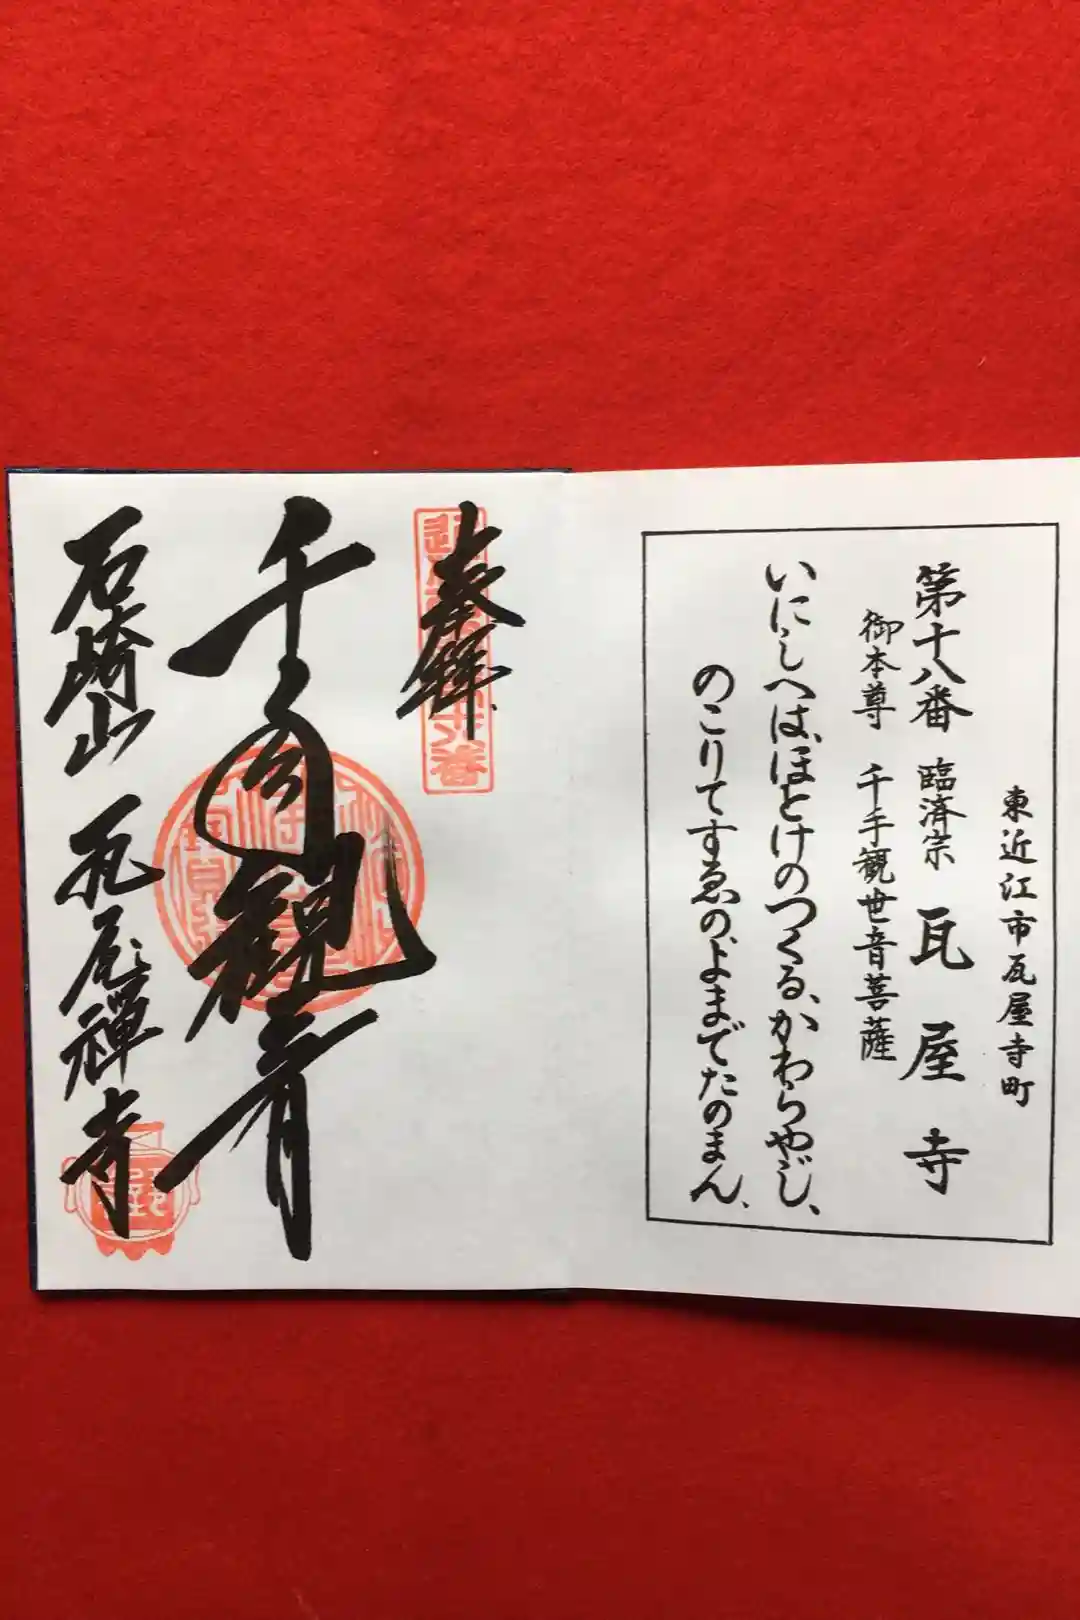 東近江市瓦屋寺町
第十八番 臨済宗 瓦屋寺
御本尊 千手観世音菩薩
いにしへは、ほとけのつくる、かわらやじ、
のこりてすゑのよまでたのまん、
奉拝
千手観音
石崎山 瓦屋禅寺